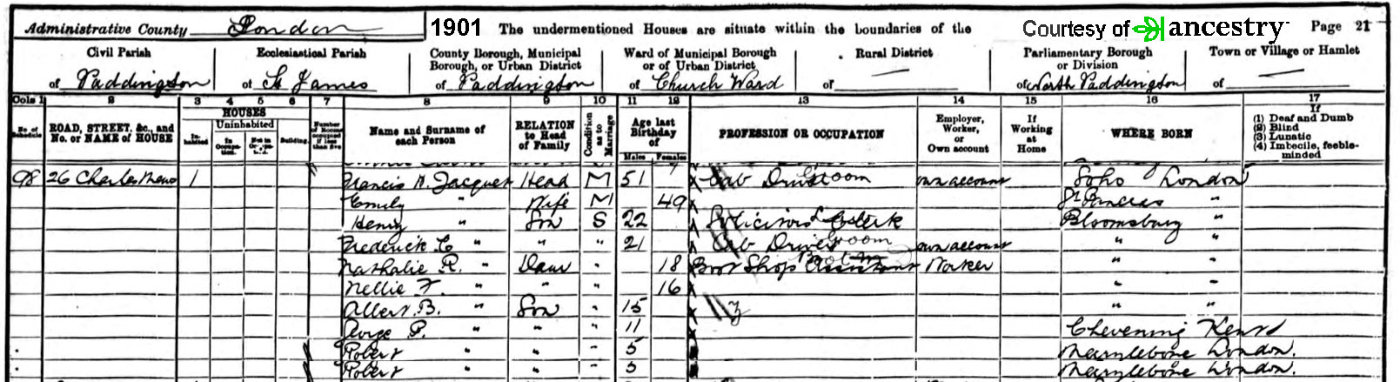 Administrative County London 1901 The undermentioned Houses are situate within the boundaries of the Courtesy of ancestry Page 21
Civil Parish Ecclesiastical Parish County Borough, Municipal Borough, or Urban District Ward of Municipal Borough or of Urban District Rural District Parliamentary Borough or Division Town or Village or Hamlet
of Paddington of St James of Paddington of Church Ward of — of North Paddington of —
Cols 1 2 3 4 5 6 7 8 9 10 11 12 13 14 15 16 17
No. of Schedule ROAD, STREET, &c., and No. or NAME of HOUSE HOUSES Inhabited Uninhabited In Occupation. Not in Occupation. Building. Number of Rooms occupied if less than five Name and Surname of each Person RELATION to Head of Family Condition as to Marriage Age last Birthday of Males Females PROFESSION OR OCCUPATION Employer, Worker, or Own account If Working at Home WHERE BORN If (1) Deaf and Dumb (2) Blind (3) Lunatic (4) Imbecile, feeble-minded
98 26 Charles Mews 1 Francis H. Jacquet Head M 51 Cab Driver Groom own account Soho London
Emily " Wife M 49 St Pancras "
Henry " Son S 22 Solicitors Clerk Bloomsbury "
Frederick C " " " 21 Cab Driver Groom own account " "
Nathalie R. " Daur " 18 Boot Shop Assistant Worker " "
Nellie F. " " " 16 " "
Albert B. " Son " 15 " "
George P. " " " 11 Chevening Kent
Robert " " " 5 Marylebone London.
Robert " " " 5 Marylebone London.